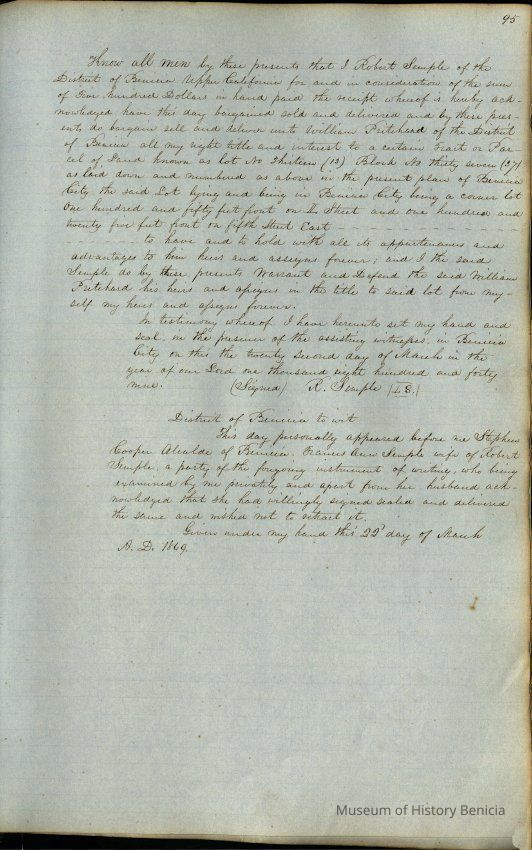 95
Know all men by these presents that I Robert Semple of the
District of Benicia Upper California for and in consideration of the sum
of Five hundred Dollars in hand paid the receipt whereof is hereby ack
nowledged have this day bargained sold and delivered and by these pres-
ents do bargain sell and deliver unto William Pritchard of the District
of Benicia all my right title and interest to a certain Tract or Par-
cel of Land known as lot No Thirteen (13) Block No thirty seven (37)
as laid down and numbered as above in the present plan of Benicia
City the said Lot lying and being in Benicia City being a corner lot
One hundred and fifty feet front on I Street and one hundred and
twenty five feet front on fifth Street East
to have and to hold with all its appurtenances and
advantages to him heirs and assigns forever; and I the said
Semple do by these presents Warrant and Defend the said William
Pritchard his heirs and assigns in the title to said lot from my-
self my heirs and assigns forever.
In testimony whereof I have hereunto set my hand and
seal, in the presence of the assisting witnesses, in Benicia
City on this the twenty second day of March in the
year of our Lord one thousand eight hundred and forty
nine. (Signed) R. Semple |L.S.|
District of Benicia to wit
This day personally appeared before me Stephen
Cooper Alcalde of Benicia. Frances Ann Semple wife of Robert
Semple, a party of the forgoing instrument of writing, who being
examined by me privately and apart from her husband ack-
nowledged that she had willingly signed sealed and delivered
the same and wished not to retract it.
Given under my hand this 22d day of March
A. D. 1849.
Museum of History Benicia